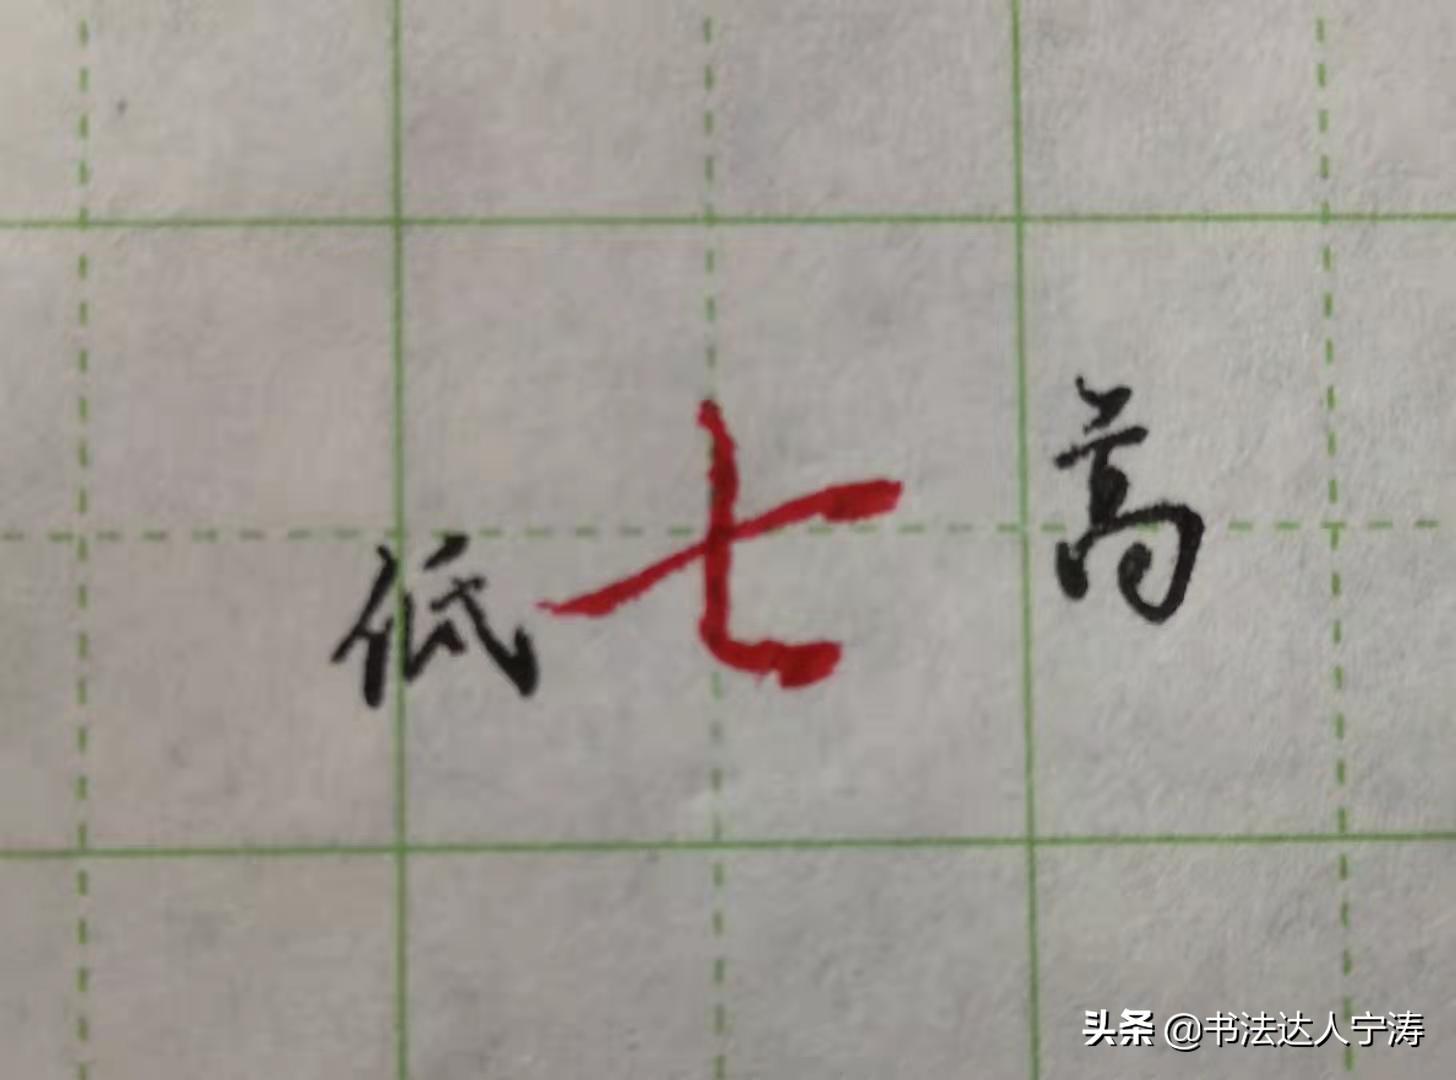 低 七 高
头条 @书法达人宁涛